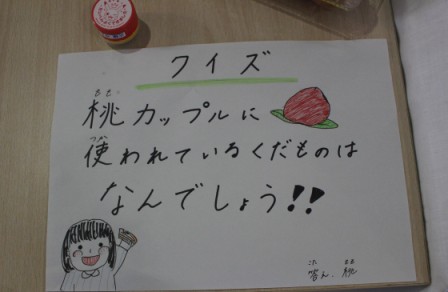 クイズ
もも
桃カップルに
つか
使われているくだものは
なんでしょう!!